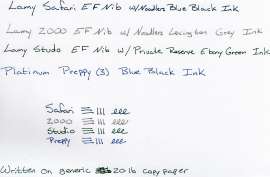 Lamy Safari EF Nib w/Noodlers Blue Black Ink
Lamy 2000 EF Nib w/ Noodlers Lexington Grey Ink
Lamy Studo EF Nib w/ Private Reserve Ebony Green Ink
Platinum Preppy (3) Blue Black Ink
Safari
2000
Studio
Preppy
Written on generic 20 lb copy paper